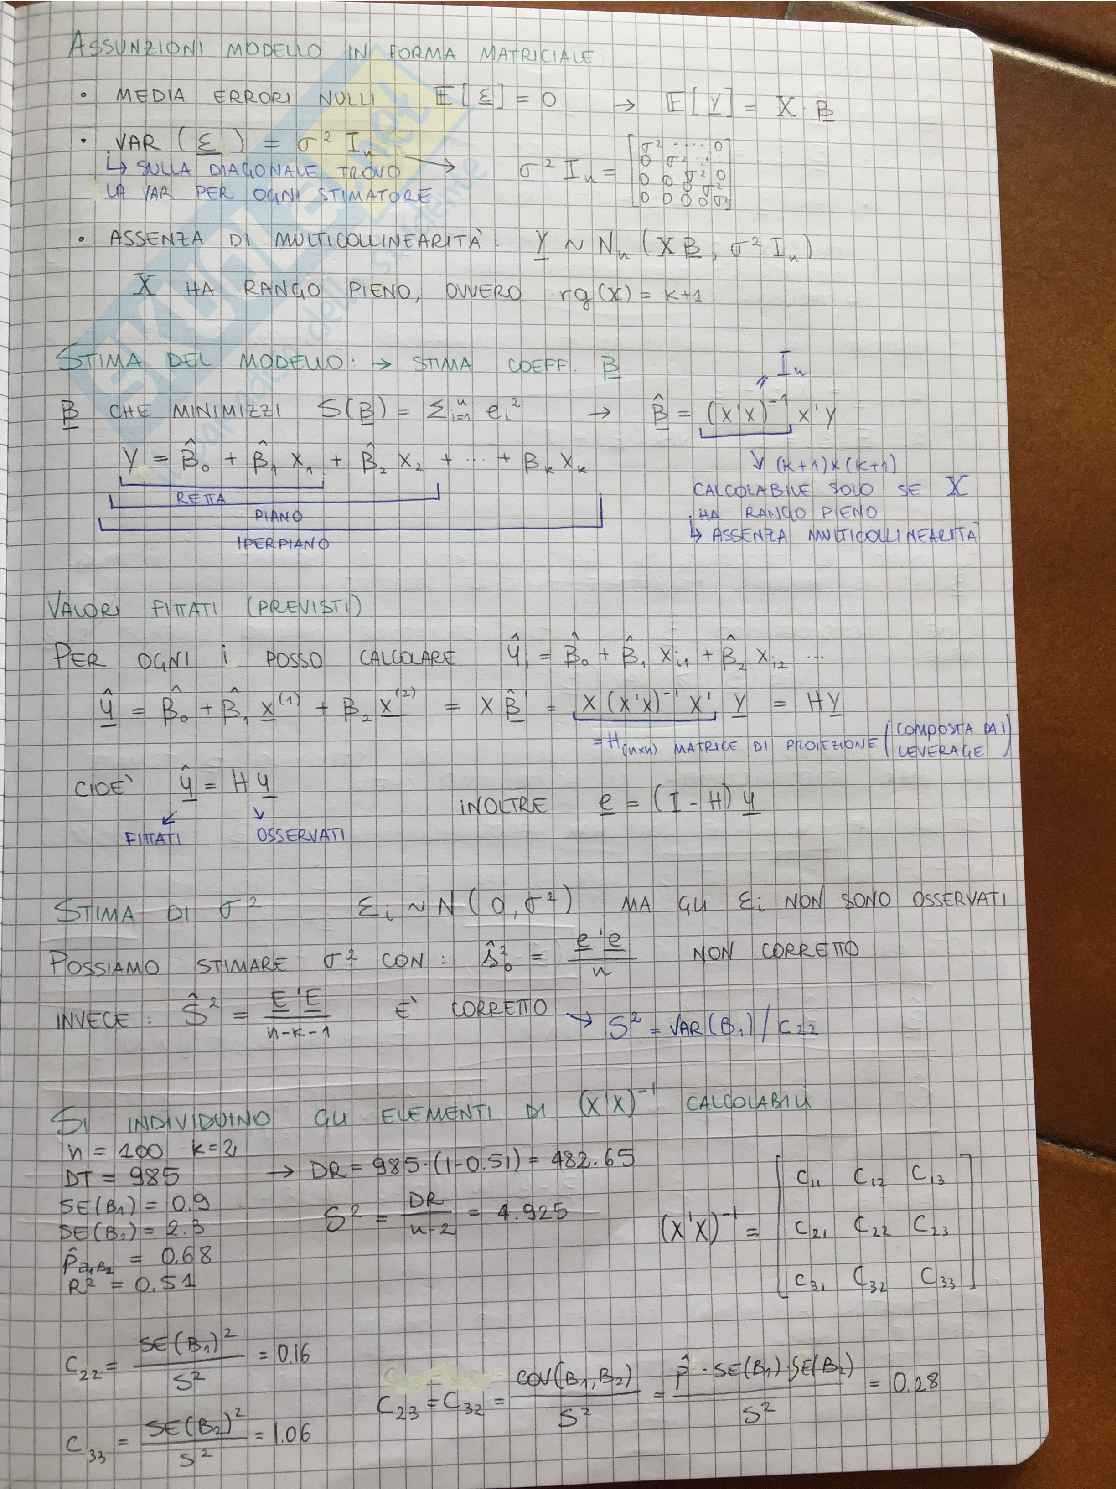 ASSUNZIONI MODELLO IN FORMA MATRICIALE
• MEDIA ERRORI NULLI E[ε] = 0 → E[Y] = X·B
• VAR(ε) = σ² Iₙ → σ² Iₙ = [σ² ..... 0 / 0 σ² ... / 0 0 σ² 0 / 0 0 0 0 σ²]
↳ SULLA DIAGONALE TROVO
LA VAR PER OGNI STIMATORE
• ASSENZA DI MULTICOLLINEARITÀ Y ~ Nₙ(XB, σ² Iₙ)
X HA RANGO PIENO, OVVERO rg(X) = k+1
STIMA DEL MODELLO: → STIMA COEFF. B
Iₙ
B CHE MINIMIZZI S(B) = Σⁿᵢ₌₁ eᵢ² → B̂ = (X'X)⁻¹ X'Y
Y = B̂₀ + B̂₁ X₁ + B̂₂ X₂ + ... + Bₖ Xₖ
(k+1)×(k+1)
RETTA
PIANO
IPERPIANO
CALCOLABILE SOLO SE X
HA RANGO PIENO
↳ ASSENZA MULTICOLLINEARITÀ
VALORI FITTATI (PREVISTI)
PER OGNI i POSSO CALCOLARE ŷᵢ = B̂₀ + B̂₁ xᵢ₁ + B̂₂ xᵢ₂ ...
ŷ = B̂₀ + B̂₁ x⁽¹⁾ + B₂ x⁽²⁾ = X B̂ = X(X'X)⁻¹ X' Y = HY
= H(n×n) MATRICE DI PROIEZIONE (COMPOSTA DAI LEVERAGE)
CIOÈ ŷ = H y
FITTATI OSSERVATI
INOLTRE e = (I - H) y
STIMA DI σ² εᵢ ~ N(0, σ²) MA GLI εᵢ NON SONO OSSERVATI
POSSIAMO STIMARE σ² CON: ŝ₀² = e'e / n NON CORRETTO
INVECE: Ŝ² = E'E / n-k-1 È CORRETTO → S² = VAR(B₁) / C₂₂
SI INDIVIDUINO GLI ELEMENTI DI (X'X)⁻¹ CALCOLABILI
n = 100 k = 2
DT = 985 → DR = 985·(1-0.51) = 482.65
SE(B₁) = 0.9
SE(B₂) = 2.3
S² = DR / n-2 = 4.925
ρ̂ B₁B₂ = 0.68
R² = 0.51
(X'X)⁻¹ = [C₁₁ C₁₂ C₁₃ / C₂₁ C₂₂ C₂₃ / C₃₁ C₃₂ C₃₃]
C₂₂ = SE(B₁)² / S² = 0.16
C₂₃ = C₃₂ = COV(B₁,B₂) / S² = ρ̂·SE(B₁)·SE(B₂) / S² = 0.28
C₃₃ = SE(B₂)² / S² = 1.06